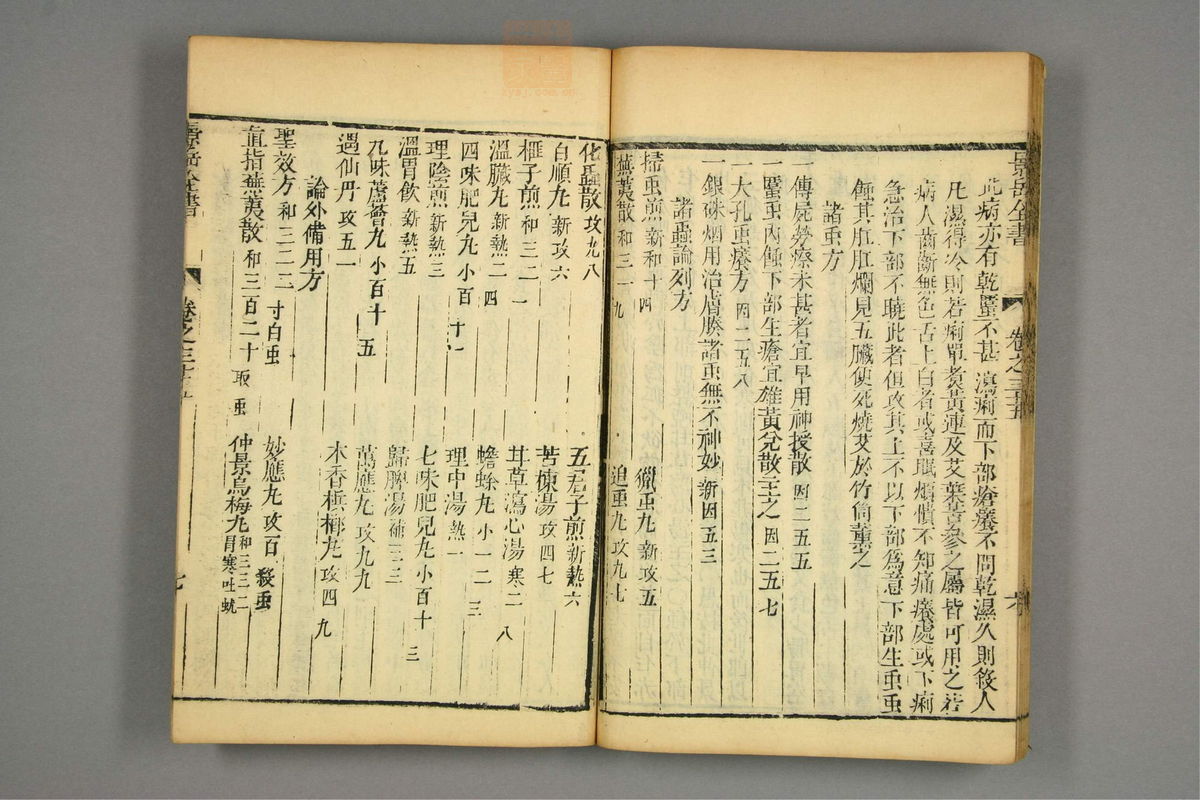 景岳全書
卷之三十五
六
此病亦有乾䘌不甚瀉痢而下部瘡癢不問乾濕久則殺人
凡濕得冷則若痢單煮黃連及艾葉苦參之屬皆可用之若
病人齒齗無色舌上白者或喜眠煩憒不知痛癢處或下痢
急治下部不曉此者但攻其上不以下部爲意下部生虫虫
蝕其肛肛爛見五臟便死燒艾於竹筒薰之
諸虫方
一傳屍勞瘵未甚者宜早用神授散 因二五五
一䘌虫內蝕下部生瘡宜雄黃兊散主之 因二五七
一大孔虫癢方 因二五八
一銀硃烟用治諸虫無不神妙 新因五三
諸蟲論列方
掃虫煎 新和十四 獵虫丸 新攻五
蕪荑散 和三一九 追虫丸 攻九七
化䘌散 攻九八 五君子煎 新熱六
白順丸 新攻六 苦楝湯 攻四七
榧子煎 和三二一 甘草瀉心湯 寒二八
溫臟丸 新熱二四 蟾蜍丸 小一二三
四味肥兒丸 小百十一 理中湯 熱一
理陰煎 新熱三 七味肥兒丸 小百十三
溫胃飲 新熱五 歸脾湯 補三三
九味蘆薈丸 小百十五 萬應丸 攻九九
遇仙丹 攻五一 木香檳榔丸 攻四九
論外備用方
聖效方 和三二二 寸白虫 妙應丸 攻百 殺虫
直指蕪荑散 和三百二十 取虫 仲景烏梅丸 和三二三 胃寒吐蚘
景岳全書
卷之三十五
七